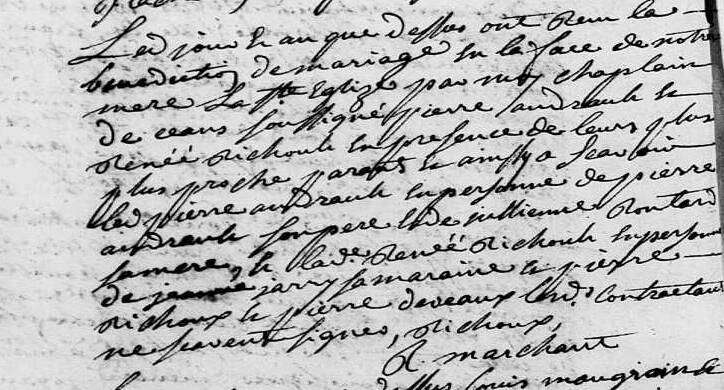 Led jour & an que dessus ont Receu la
benediction de mariage En la face de notre
mere La Ste Eglise par moy chaplain
de ceans soussigné pierre audrault et
Renée Richoult En presence de leurs plus
plus proche parans et amys a scavoir
led pierre audrault En personne de pierre
audrault son pere Et de Jullienne Routard
sa mere, & lade Renéé Richoult En personne
de jeanne jarry sa maraine & pierre
Richoux & pierre deveaux lesd. Contractans
ne scavent signer, Richoux,
R marchant
dessus louis maugrain &